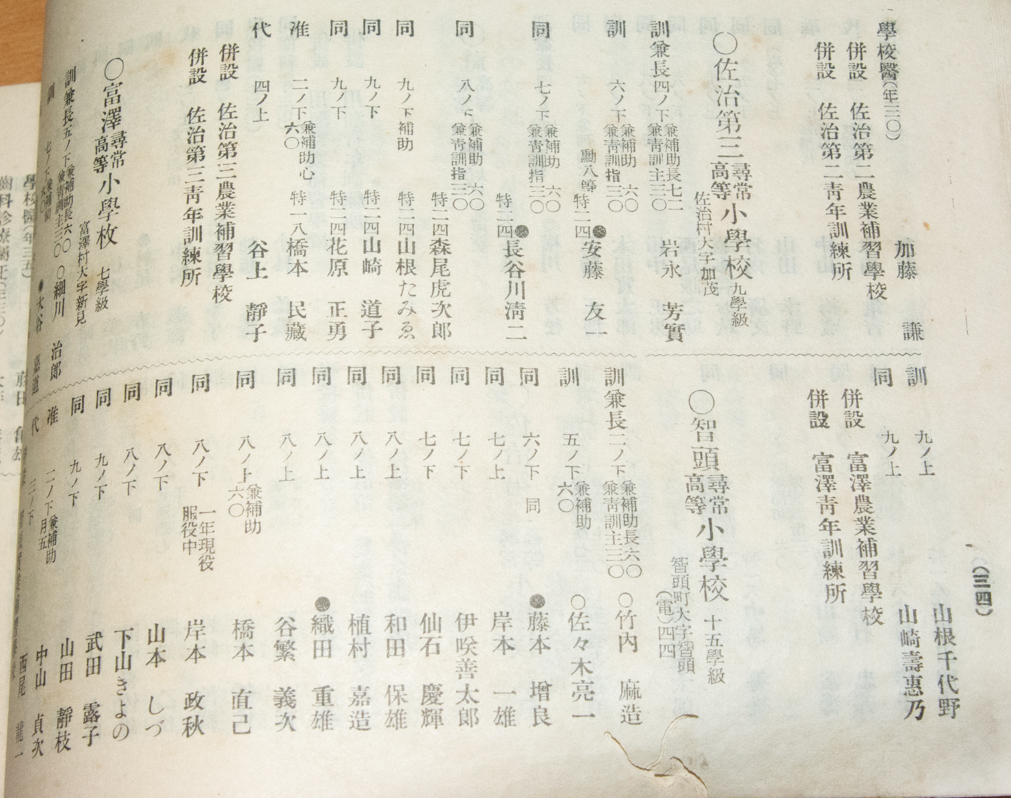 (三四)
學校醫(年三〇) 加藤 謙
併設 佐治第二農業補習學校
併設 佐治第二靑年訓練所
〇佐治第三尋常高等小學校 九學級
佐治村大字加茂
訓兼長 四ノ下 兼補助長七二 兼靑訓主三〇 岩永 芳實
訓 六ノ下 兼補助 六〇 兼靑訓指三〇 勳八等 特二四 ●安藤 友一
同 七ノ下 兼補助 六〇 兼靑訓指三〇 特二四 ●長谷川淸二
同 八ノ下 兼補助 六〇 兼靑訓指三〇 特二四 森尾虎次郎
同 九ノ下 補助 特二四 山根たみゑ
同 九ノ下 特二四 山崎 道子
同 九ノ下 特二四 花原 正勇
准 二ノ下 兼補助心 六〇 特一八 橋本 民藏
代 四ノ上 谷上 靜子
併設 佐治第三農業補習學校
併設 佐治第三靑年訓練所
〇富澤尋常高等小學校 七學級
富澤村大字新見
訓兼長 五ノ下 兼補助長六〇 兼靑訓主三〇 〇細川 治郎
訓 七ノ下 兼補助
訓 九ノ上 山根千代野
同 九ノ上 山崎壽惠乃
併設 富澤農業補習學校
併設 富澤靑年訓練所
〇智頭尋常高等小學校 十五學級
智頭町大字智頭
(電)四四
訓兼長 二ノ下 兼補助長六〇 兼靑訓主三〇 〇竹内 麻造
訓 五ノ下 兼補助 六〇 〇佐々木亮一
同 六ノ下 同 ●藤本 增良
同 七ノ上 岸本 一雄
同 七ノ下 伊咲善太郎
同 七ノ下 仙石 慶輝
同 八ノ上 和田 保雄
同 八ノ上 植村 嘉造
同 八ノ上 ●織田 重雄
同 八ノ上 谷繁 義次
同 八ノ上 兼補助 六〇 橋本 直己
同 八ノ下 一年現役服役中 岸本 政秋
同 八ノ下 山本 しづ
同 八ノ下 下山きよの
同 九ノ下 武田 露子
同 九ノ下 山田 靜枝
准 二ノ下 兼補助 月五 中山 貞次
代 三ノ下 西尾